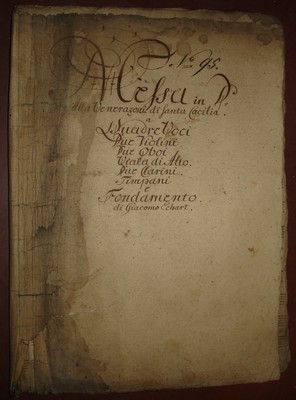 No: 95.
Messa in D.
Alla Venerazone di Santa Cacilia.
a
Quadre Voci
Due Violini
Due Oboi
Viola di Alto.
Due Clarini
Timpani
e
Fondamento.
di Giacomo Schart.